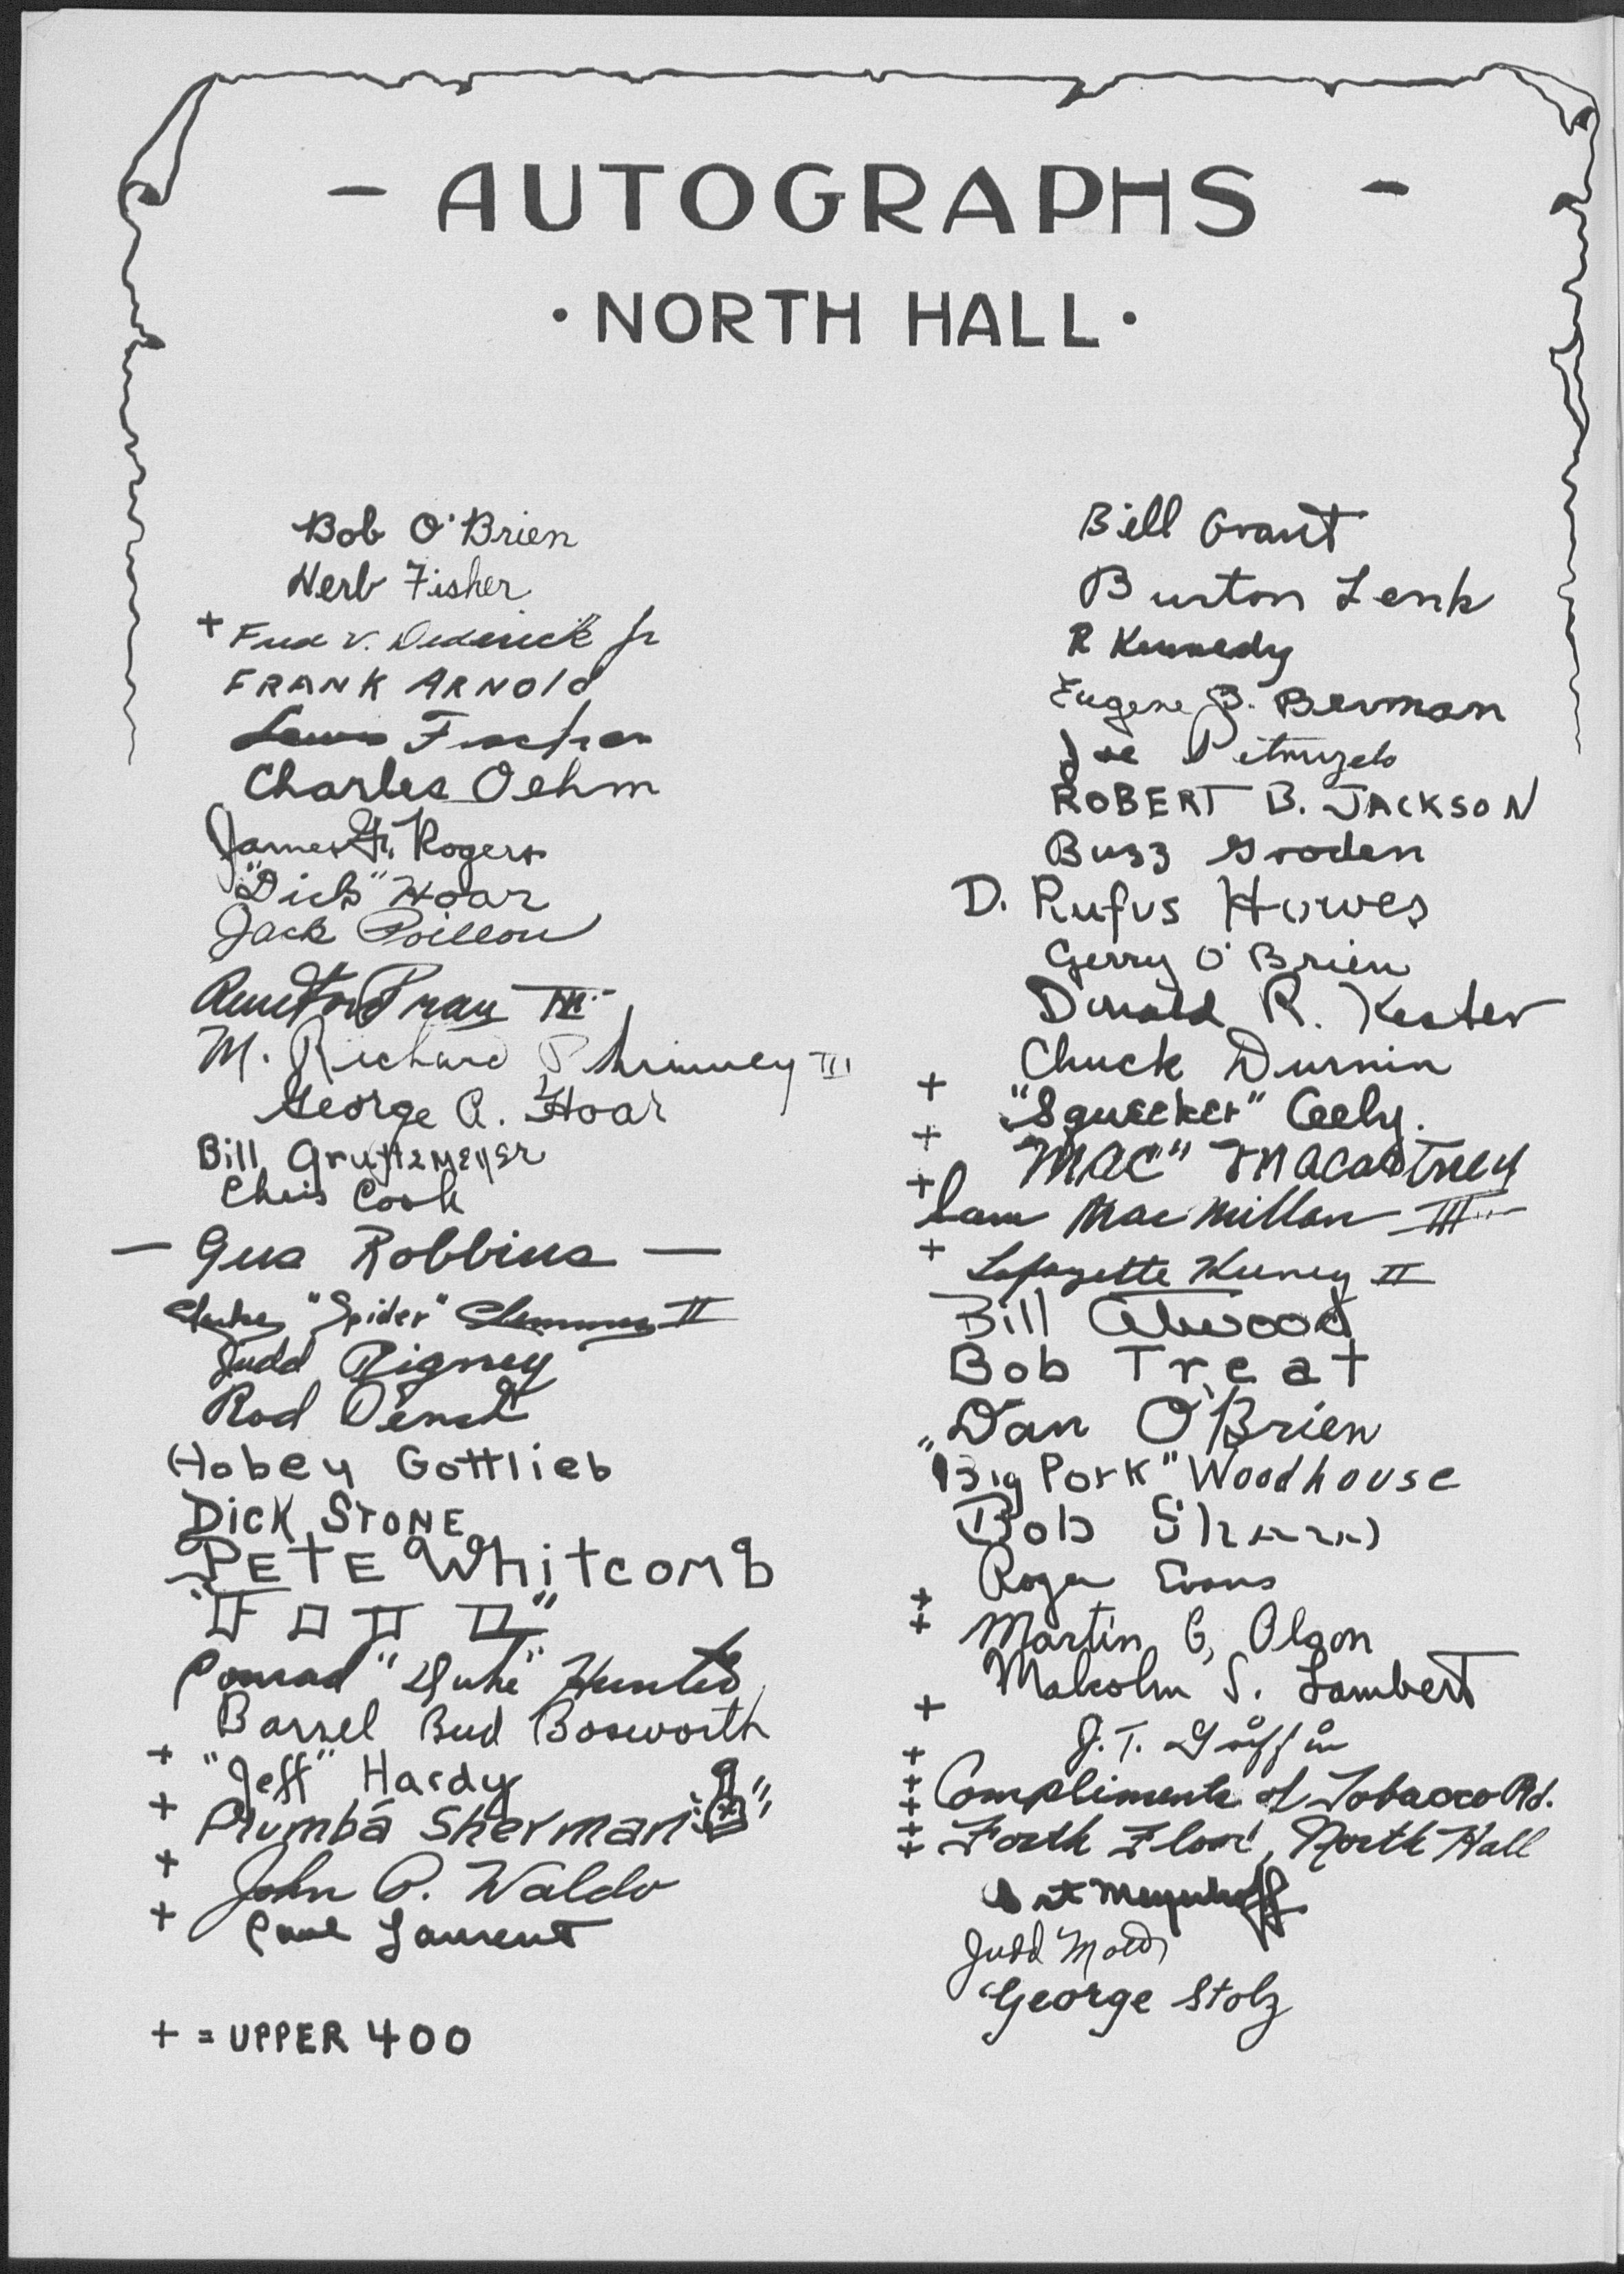 - AUTOGRAPHS -
· NORTH HALL ·
Bob O'Brien
Herb Fisher
+ Fred V. Dederick Jr
FRANK ARNOLD
Charles Oehm
James G. Rogers
"Dick" Hoar
Jack Poillon
III
M. Richard Phinney III
George A. Hoar
Bill Grutzmeyer
Chris Cook
- Gus Robbins -
"Spider" Clemmens II
Judd Rigney
Rod
Hobey Gottlieb
DICK STONE
PETE Whitcomb
Conrad "Duke" Hunter
Barrel Bud Bosworth
+ "Jeff" Hardy
+ Plumba Sherman
+ John P. Waldo
+ Paul Laurent
+ = UPPER 400
Bill Grant
Burton Lenk
R Kennedy
Eugene B. Berman
Joe
ROBERT B. JACKSON
Buzz Gooden
D. Rufus Howes
Gerry O'Brien
Donald R. Kester
Chuck Durnin
+ "Squeeker" Ceely.
+ "MAC" Macartney
+ Sam MacMillan III
+ Lafayette Keeney II
Bill Atwood
Bob Treat
Dan O'Brien
"Big Pork" Woodhouse
Bob
Roger Evans
+ Martin G. Olson
+ Malcolm S. Lambert
+ J. T. Griffin
+ Compliments of Tobacco Rd.
+ Forth Floor, North Hall
Meyerhoff
Judd
George Stolz